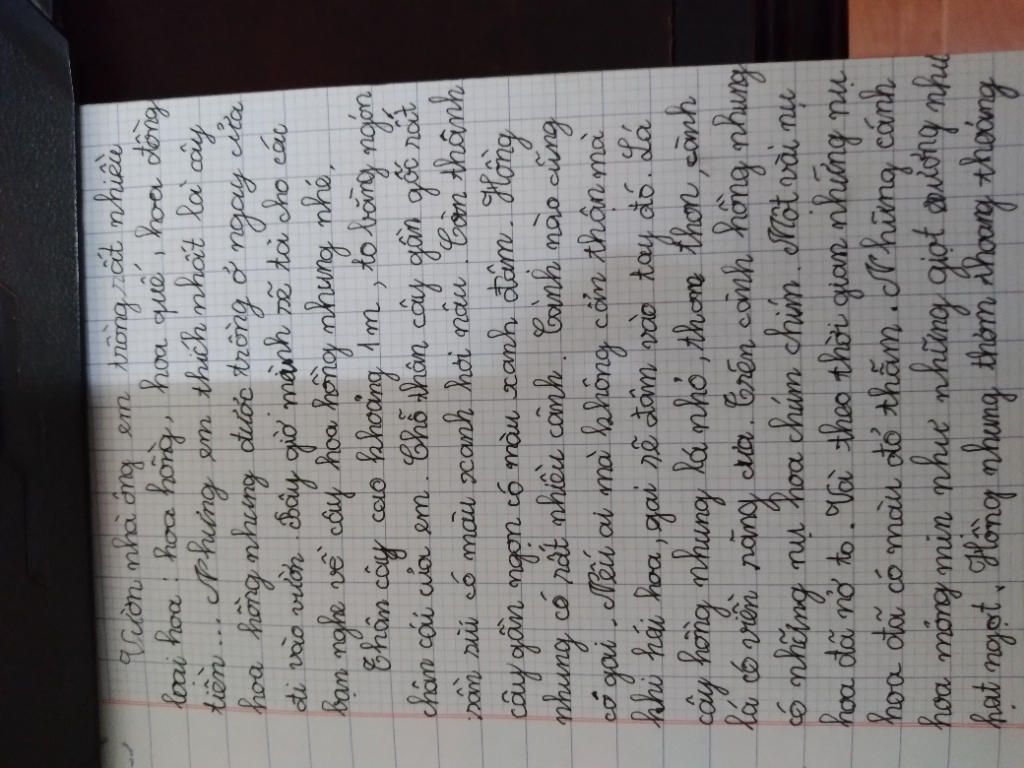 Vườn nhà ông em trồng rất nhiều
loài hoa : hoa hồng, hoa quế, hoa đồng
tiền.... Nhưng em thích nhất là cây
hoa hồng nhung được trồng ở ngay cửa
đi vào vườn. Bây giờ mình sẽ tả cho các
bạn nghe về cây hoa hồng nhung nhé.
Thân cây cao khoảng 1m, to bằng ngón
chân cái của em. Chỗ thân cây gần gốc rất
xần xùi có màu xanh hơi nâu. Còn thành
cây gần ngọn có màu xanh đậm. Hồng
nhung có rất nhiều cành. Cành nào cũng
có gai. Nếu ai mà không cẩn thận mà
khi hái hoa, gai sẽ đâm vào tay đó. Lá
cây hồng nhung lá nhỏ, thon thon, cành
lá có viền răng cưa. Trên cành hồng nhung
có những nụ hoa chúm chím. Một vài nụ
hoa đã nở to. Và theo thời gian những nụ
hoa đã có màu đỏ thắm. Những cánh
hoa mỏng mịn như những giọt sương như
hạt ngọt. Hồng nhung thơm thoang thoảng